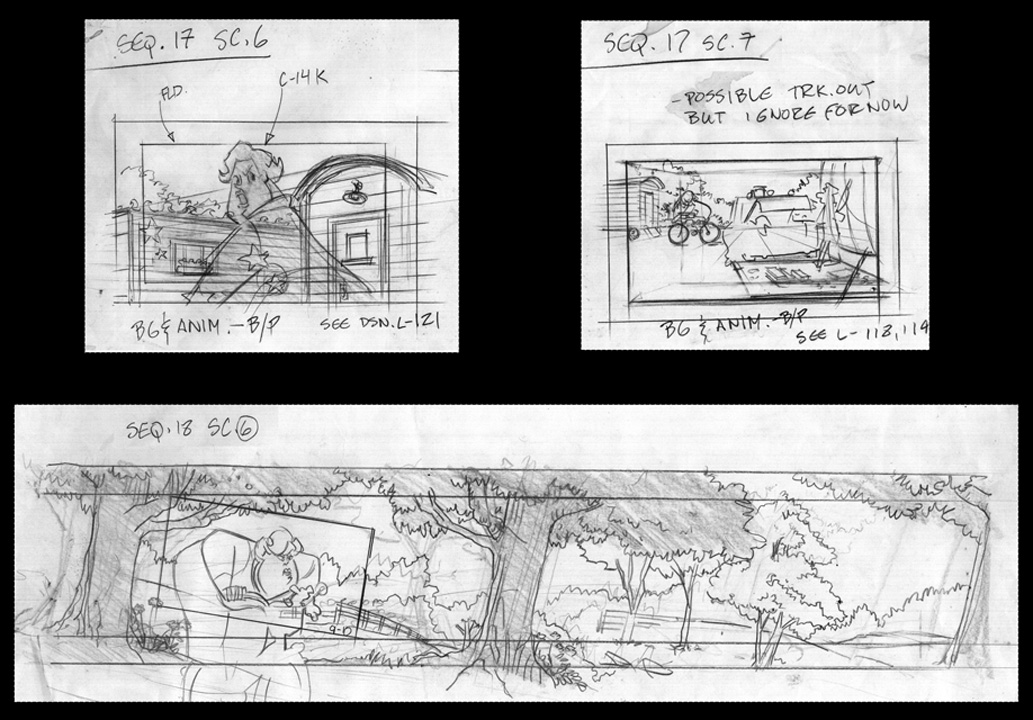 SEQ. 17 SC. 6
FLD.
C-14K
BG & ANIM. - B/P
SEE DSN. L-121
SEQ. 17 SC. 7
- POSSIBLE TRK. OUT
BUT IGNORE FOR NOW
BG & ANIM. - B/P
SEE L-113, 114
SEQ. 18 SC. 6